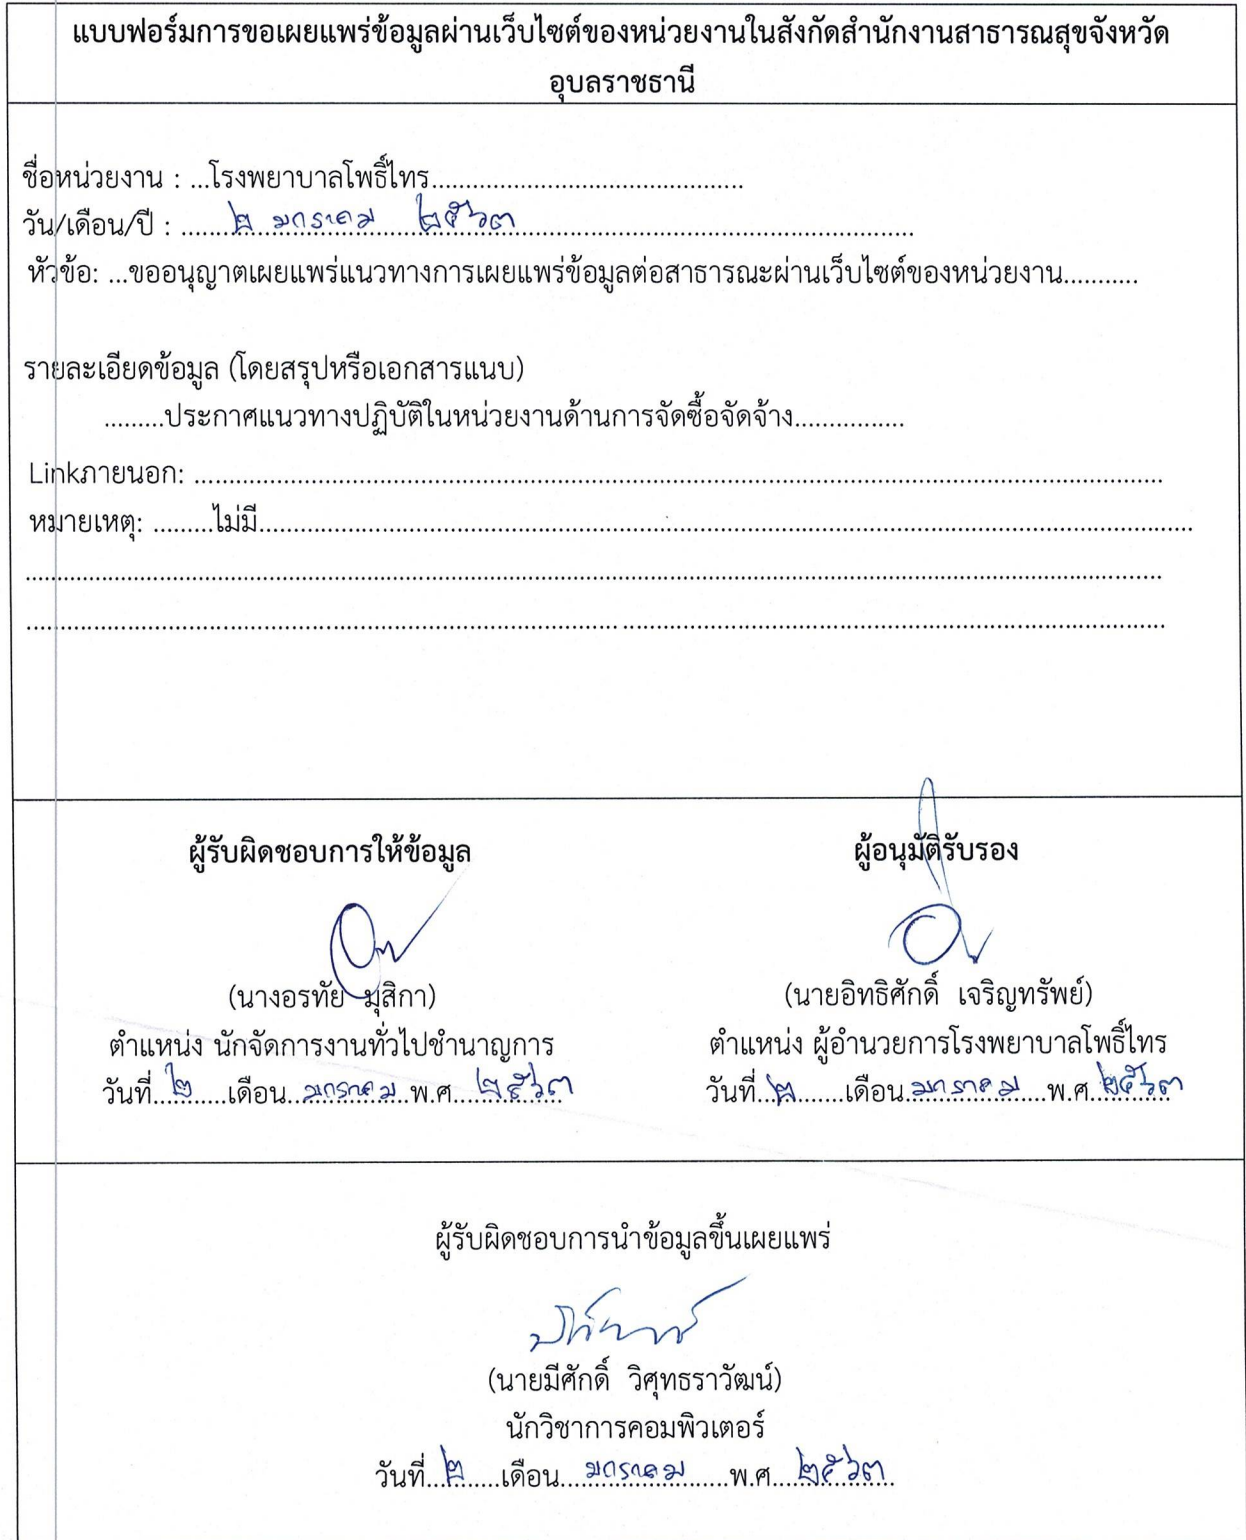 แบบฟอร์มการขอเผยแพร่ข้อมูลผ่านเว็บไซต์ของหน่วยงานในสังกัดสำนักงานสาธารณสุขจังหวัด
อุบลราชธานี
ชื่อหน่วยงาน : ...โรงพยาบาลโพธิ์ไทร..........................................
วัน/เดือน/ปี : ....... ๒ มกราคม ๒๕๖๓ .......................................................
หัวข้อ: ...ขออนุญาตเผยแพร่แนวทางการเผยแพร่ข้อมูลต่อสาธารณะผ่านเว็บไซต์ของหน่วยงาน..........
รายละเอียดข้อมูล (โดยสรุปหรือเอกสารแนบ)
.........ประกาศแนวทางปฏิบัติในหน่วยงานด้านการจัดซื้อจัดจ้าง...............
Linkภายนอก: ....................................................................................................................................
หมายเหตุ: ........ไม่มี...............................................................................................................................
ผู้รับผิดชอบการให้ข้อมูล
(นางอรทัย มุสิกา)
ตำแหน่ง นักจัดการงานทั่วไปชำนาญการ
วันที่..๒.....เดือน..มกราคม..พ.ศ....๒๕๖๓
ผู้อนุมัติรับรอง
(นายอิทธิศักดิ์ เจริญทรัพย์)
ตำแหน่ง ผู้อำนวยการโรงพยาบาลโพธิ์ไทร
วันที่..๒.......เดือน.มกราคม....พ.ศ.๒๕๖๓
ผู้รับผิดชอบการนำข้อมูลขึ้นเผยแพร่
(นายมีศักดิ์ วิศุทธราวัฒน์)
นักวิชาการคอมพิวเตอร์
วันที่..๒.....เดือน....มกราคม......พ.ศ....๒๕๖๓.